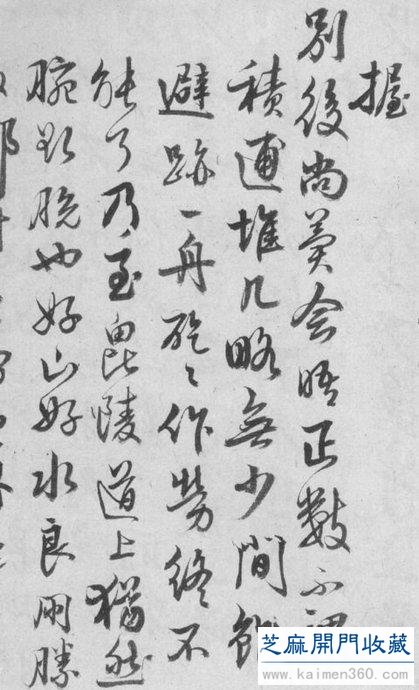 握
別後尚冀会晤正數不
積逋堆几略無少間
避跡一舟矻〻作勞終不
能了乃至毘陵道上猶然
腕欲脫也好山好水良朋勝
芝麻開門收藏
www.kaimen360.com